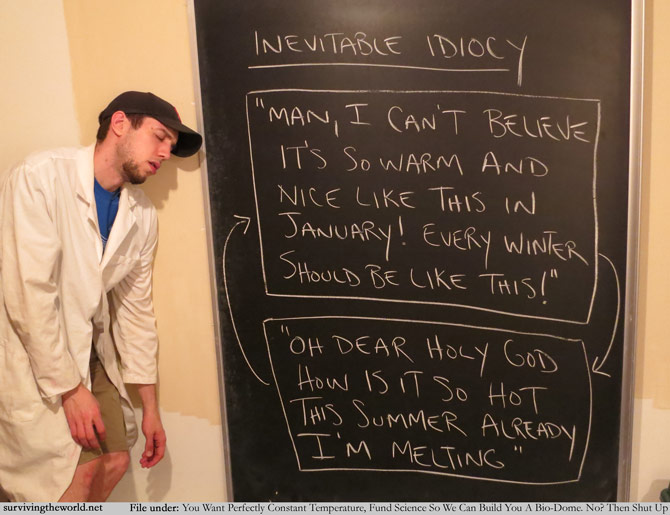 INEVITABLE IDIOCY
"MAN, I CAN'T BELIEVE
IT'S SO WARM AND
NICE LIKE THIS IN
JANUARY! EVERY WINTER
SHOULD BE LIKE THIS!"
"OH DEAR HOLY GOD
HOW IS IT SO HOT
THIS SUMMER ALREADY
I'M MELTING"
survivingtheworld.net File under: You Want Perfectly Constant Temperature, Fund Science So We Can Build You A Bio-Dome. No? Then Shut Up.